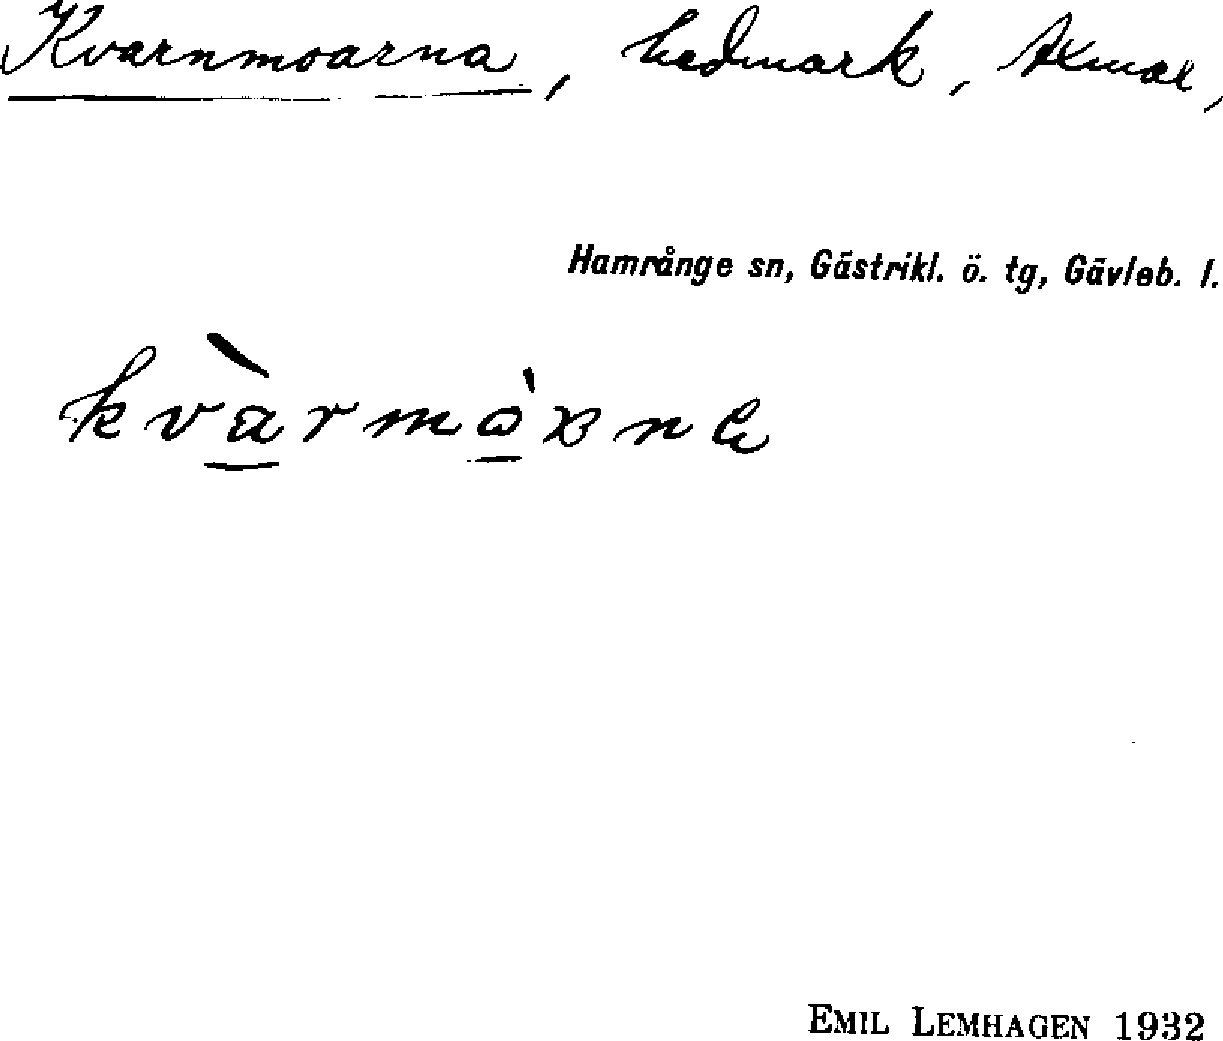 Kvarnmoarna, hedmark, Axmar,
Hamrånge sn, Gästrikl. ö. tg, Gävleb. l.
EMIL LEMHAGEN 1932